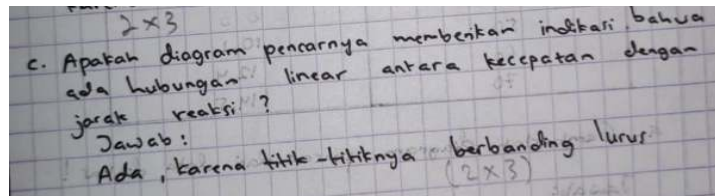 2x3
c. Apakah diagram pencarnya memberikan indikasi bahwa
ada hubungan linear antara kecepatan dengan
jarak reaksi?
Jawab:
Ada, karena titik-titiknya berbanding lurus
(2x3)